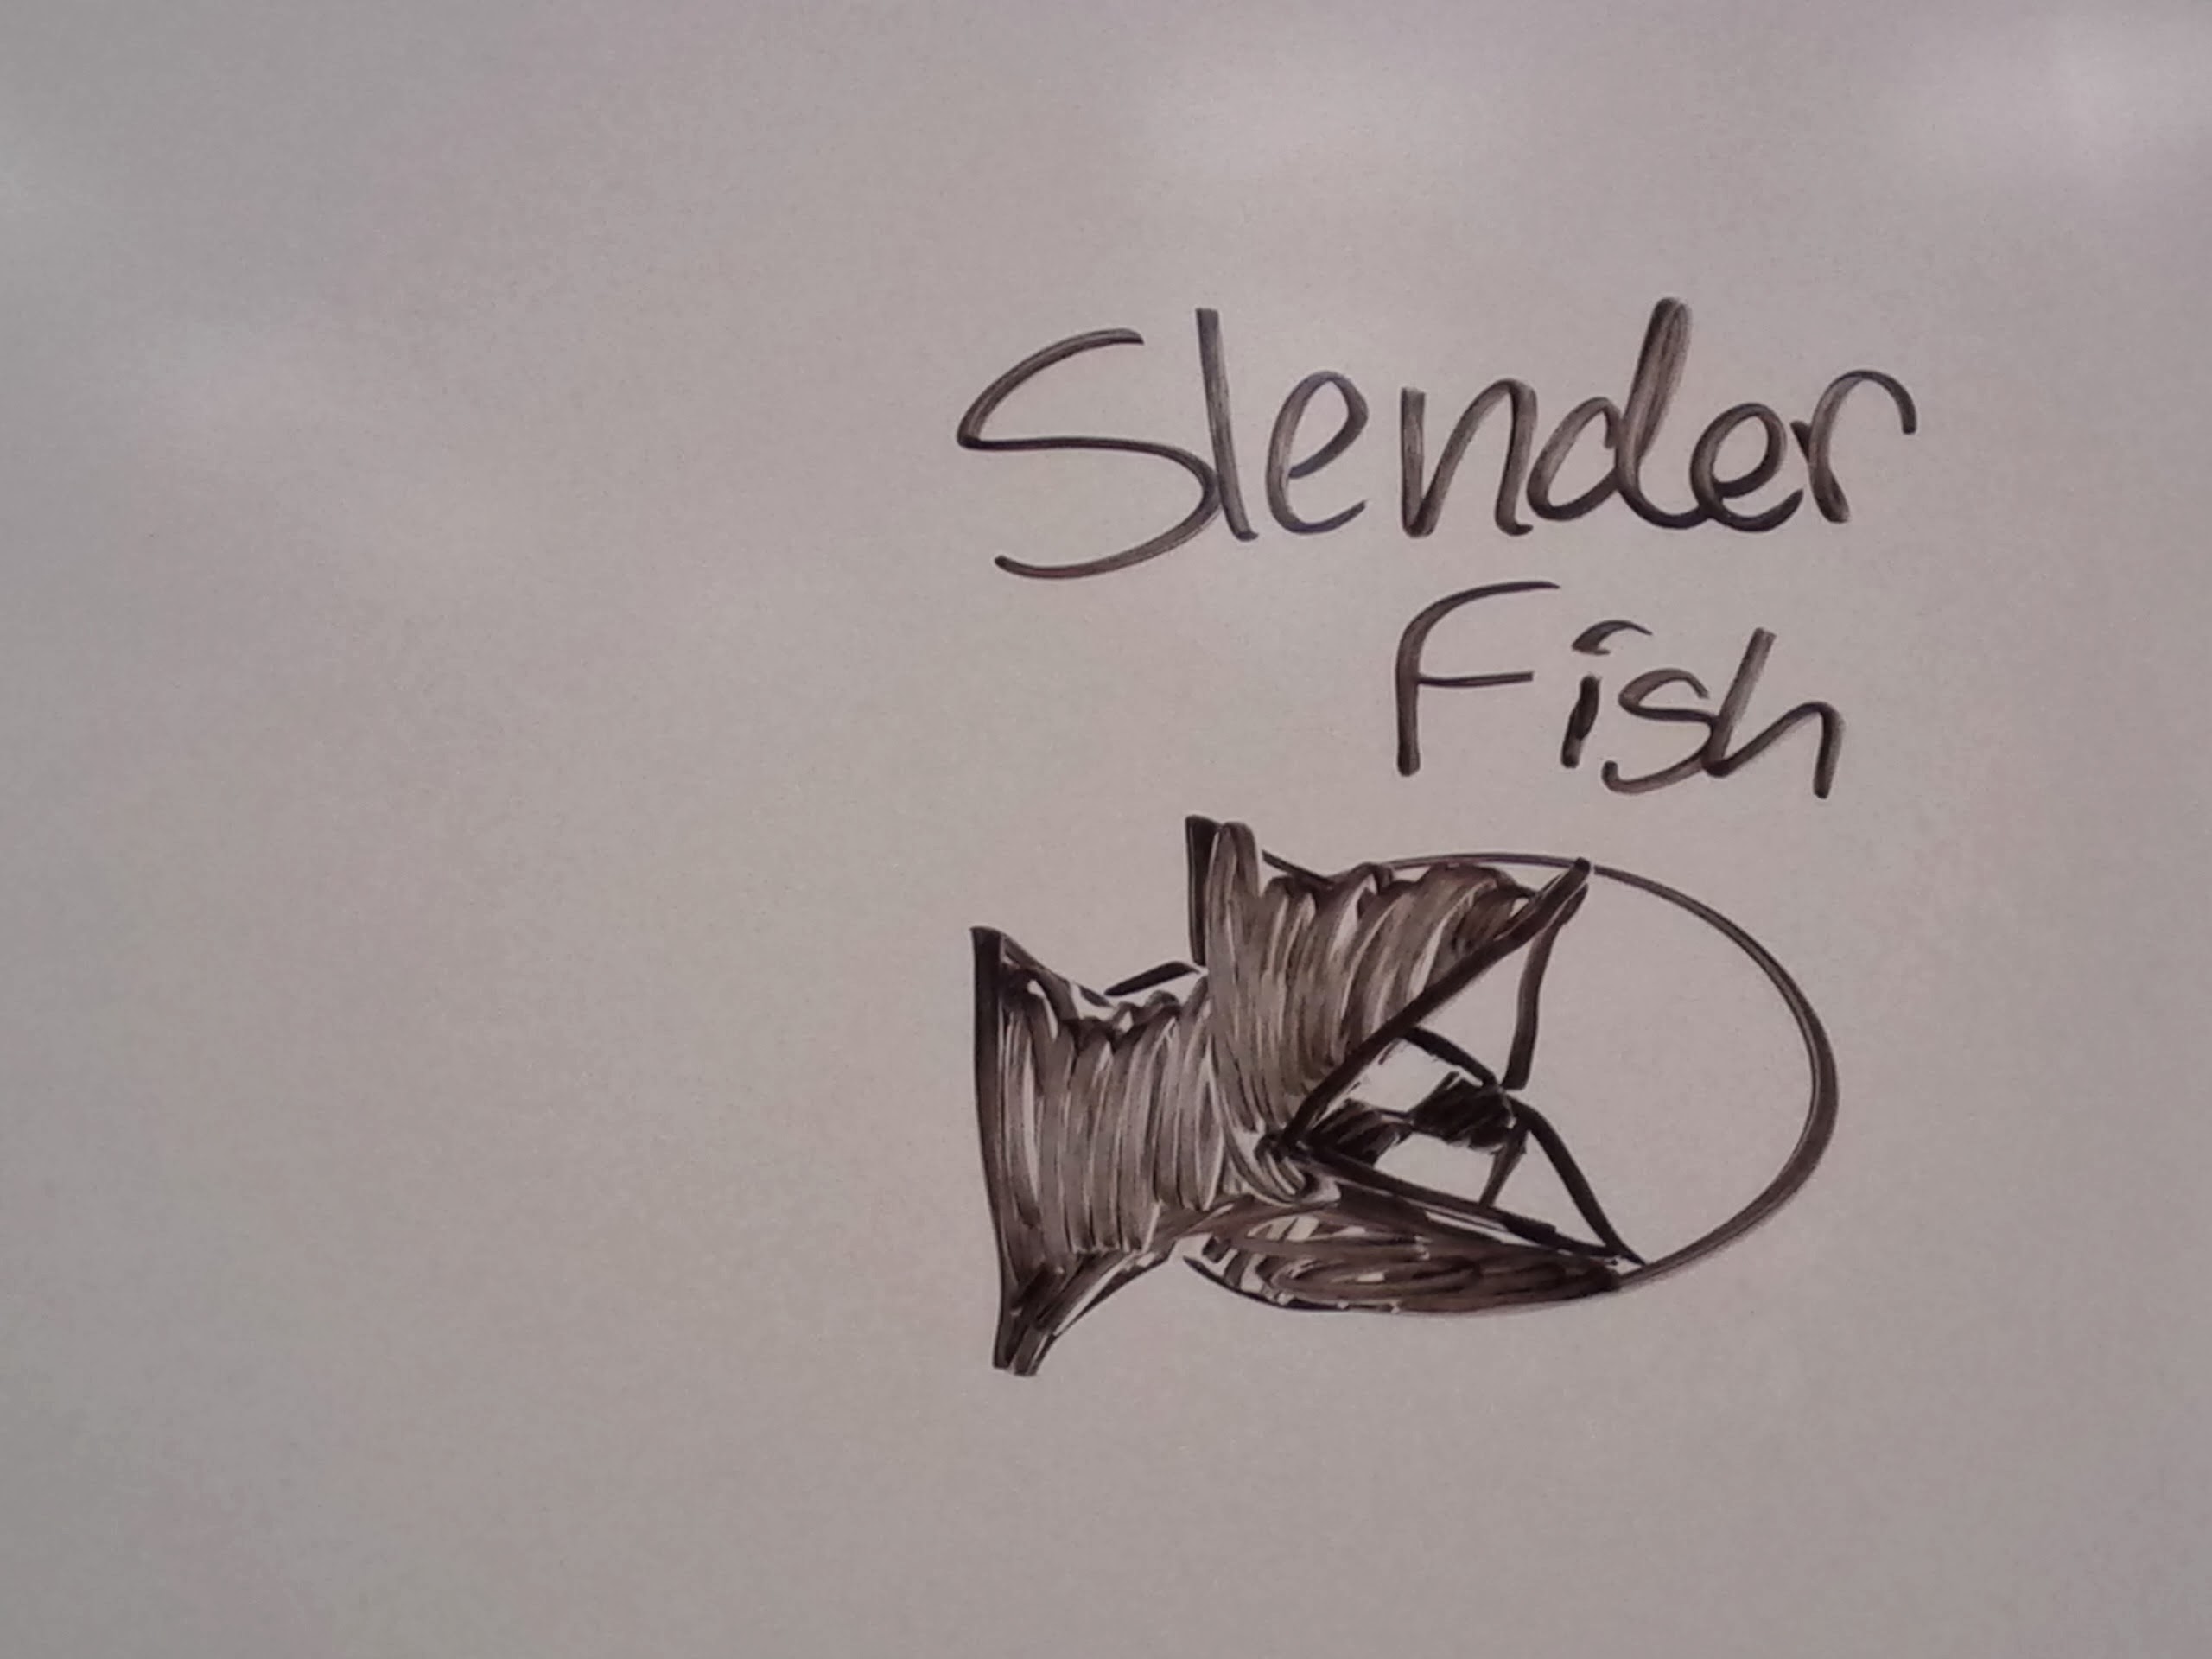 Slender
Fish